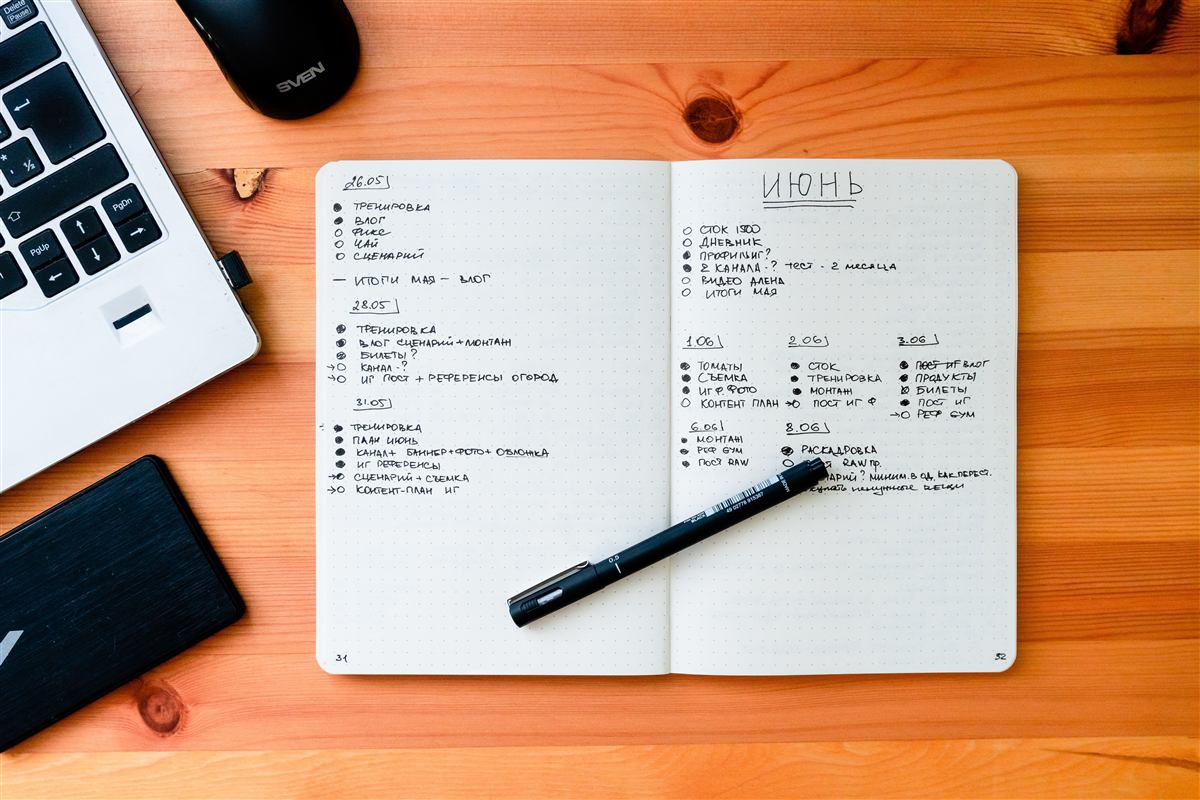 Delete
Pause
½
PgDn
PgUp
SVEN
26.05
ТРЕНИРОВКА
ВЛОГ
ФИКС
ЧАЙ
СЦЕНАРИЙ
— ИТОГИ МАЯ — ВЛОГ
28.05
ТРЕНИРОВКА
ВЛОГ СЦЕНАРИЙ + МОНТАЖ
БИЛЕТЫ?
КАНАЛ - ?
ИГ ПОСТ + РЕФЕРЕНСЫ ОГОРОД
31.05
ТРЕНИРОВКА
ПЛАН ИЮНЬ
КАНАЛ + БАННЕР + ФОТО + ОБЛОЖКА
ИГ РЕФЕРЕНСЫ
СЦЕНАРИЙ + СЪЕМКА
КОНТЕНТ-ПЛАН ИГ
31
ИЮНЬ
СТОК 1500
ДНЕВНИК
ПРОФИЛИГ?
2 КАНАЛА - ? тест - 2 месяца
ВИДЕО АЛЕНА
ИТОГИ МАЯ
1.06
ТОМАТЫ
СЪЕМКА
ИГ Ф. ФОТО
КОНТЕНТ ПЛАН
2.06
СТОК
ТРЕНИРОВКА
МОНТАЖ
ПОСТ ИГ Ф
3.06
ПОСТ ИГ ВЛОГ
ПРОДУКТЫ
БИЛЕТЫ
ПОСТ ИГ
РЕФ GYM
6.06
МОНТАЖ
РЕФ GYM
ПОСТ RAW
8.06
РАСКАДРОВКА
RAW пр.
МИНИМ. В ОД. КАК ПЕРЕСТ.
ненужные вещи
32
0.5
BLACK
49 02778 915367
MADE IN